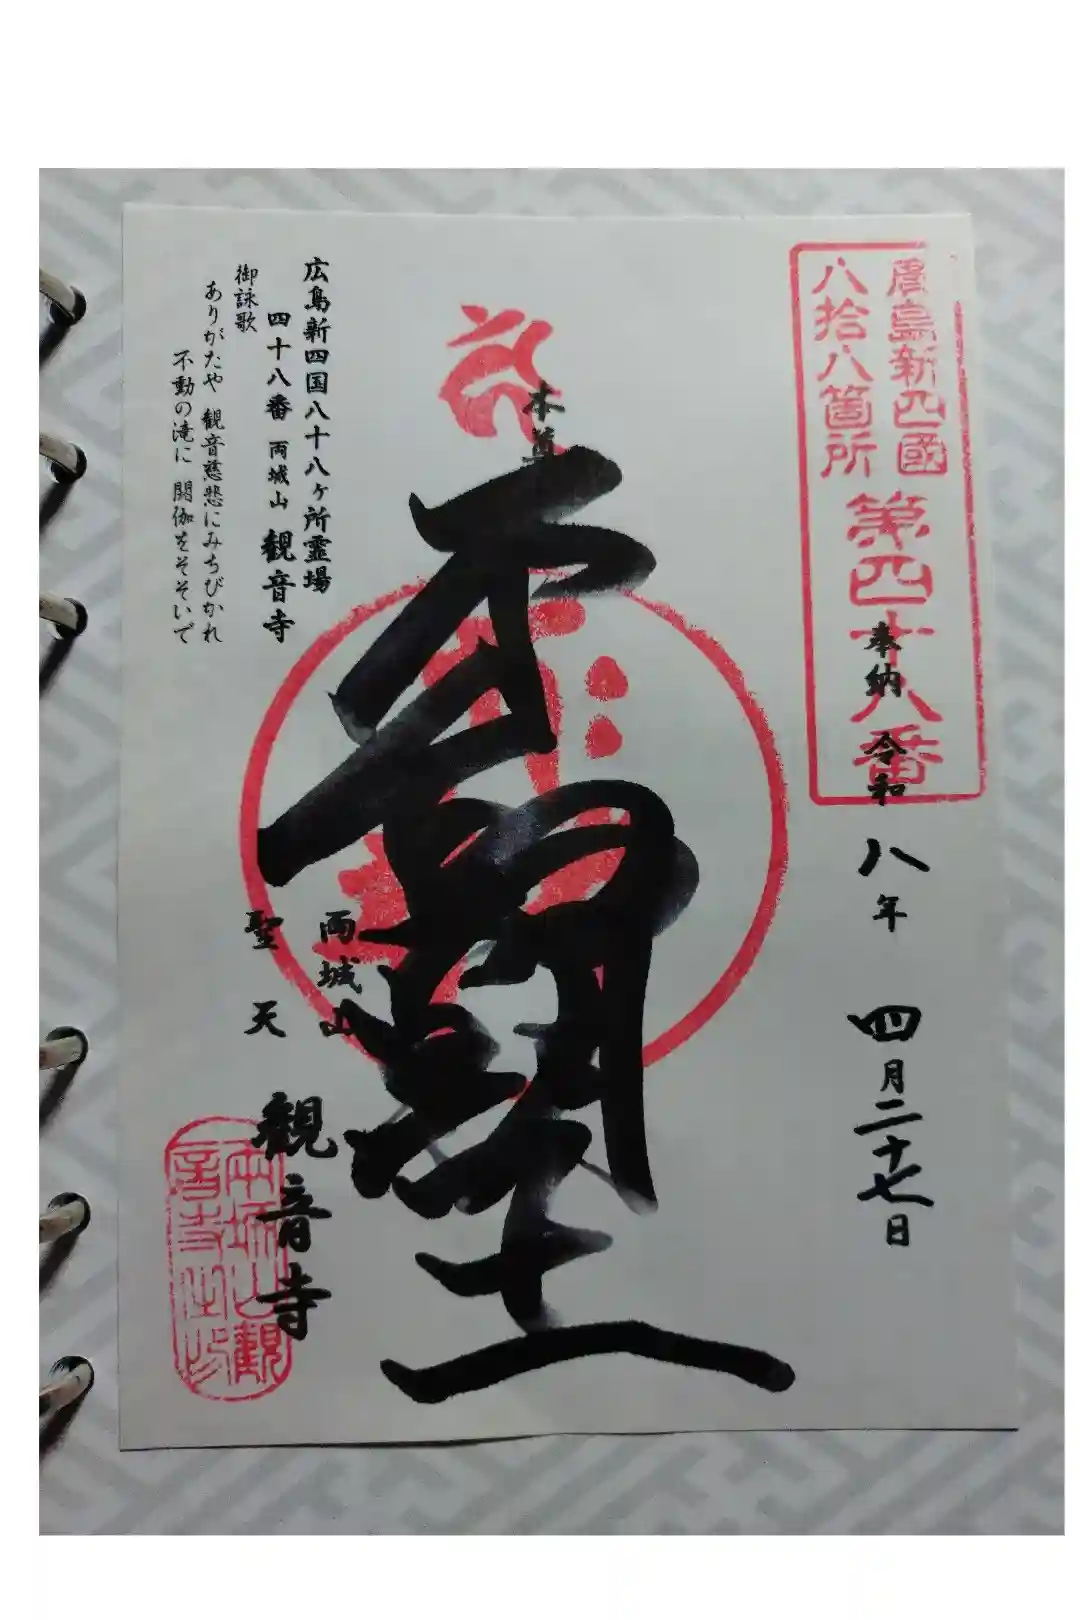 廣島新四國
八拾八箇所
第四十八番
奉納 令和八年 四月二十七日
本尊
広島新四国八十八ヶ所霊場
四十八番 両城山 観音寺
御詠歌
ありがたや 観音慈悲にみちびかれ
不動の滝に 閼伽をそそいで
両城山
聖天
観音寺